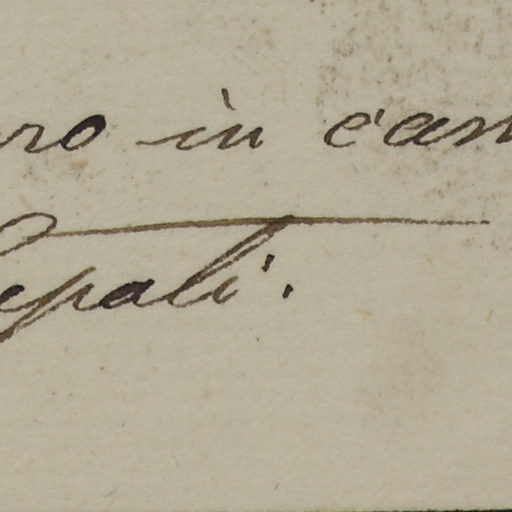 ro in can
epali.